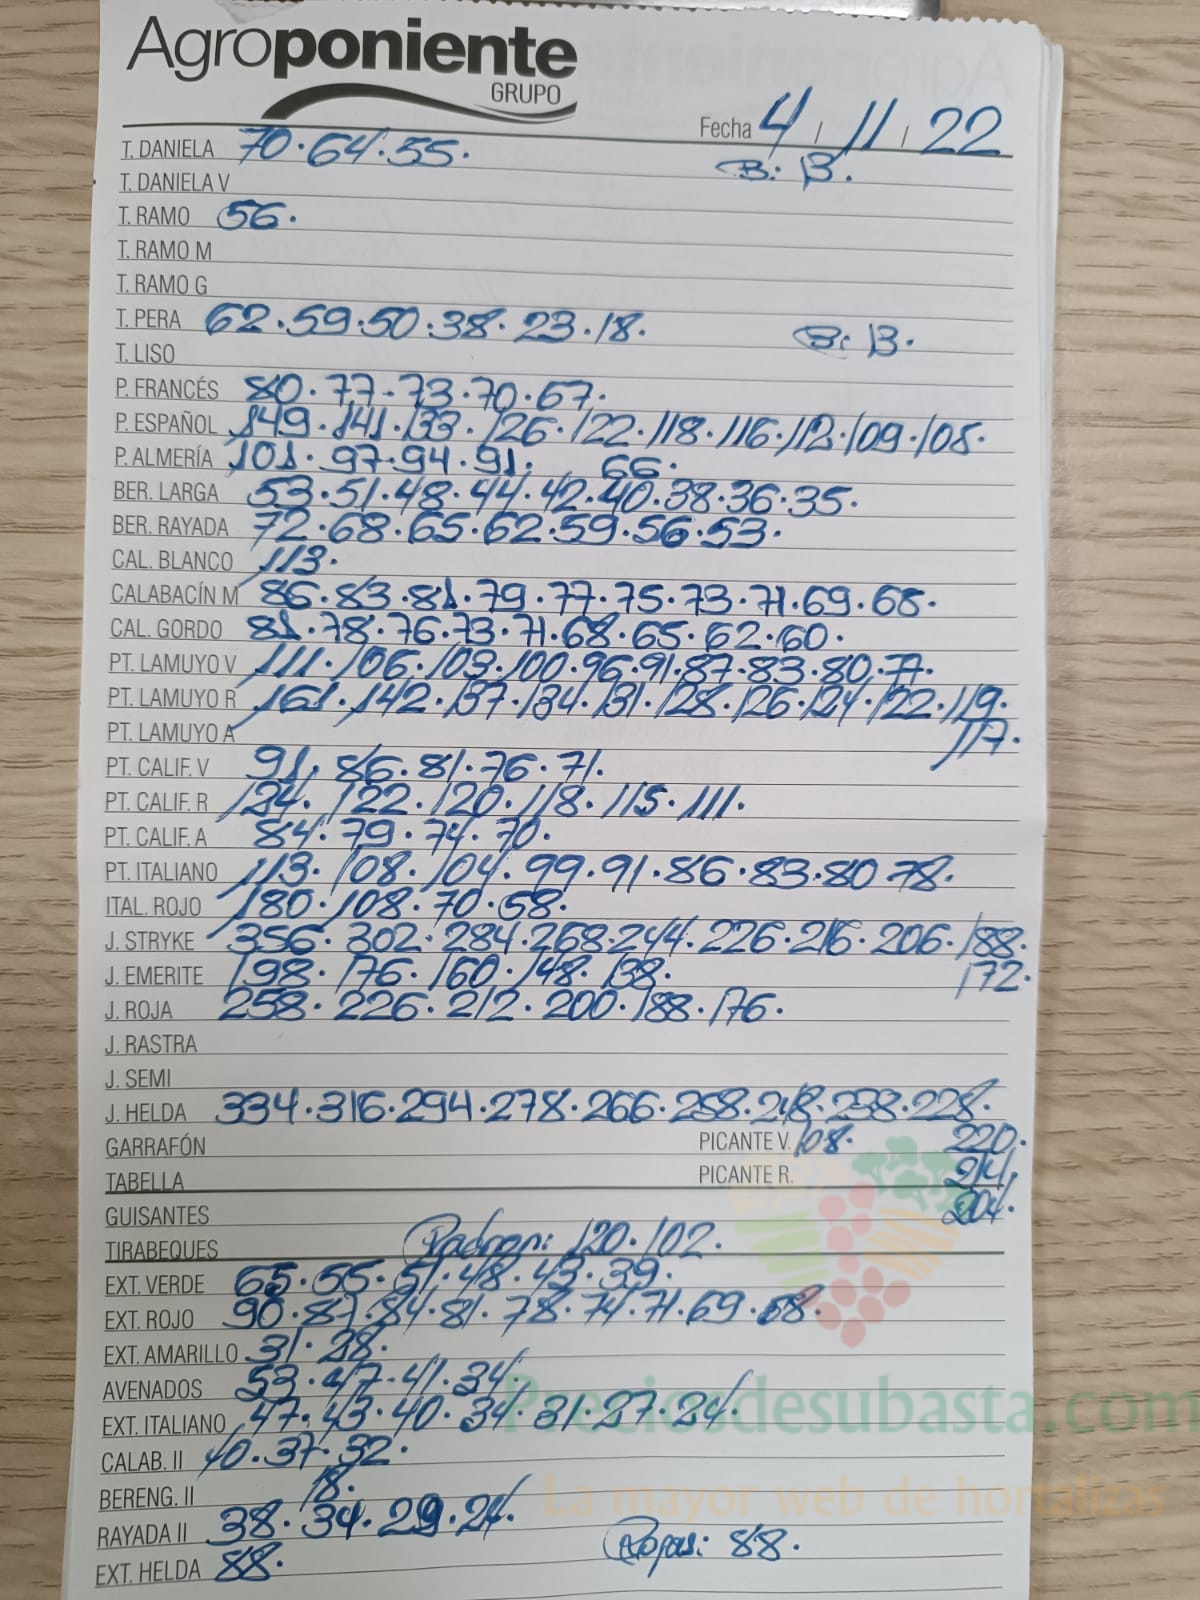 Agroponiente
GRUPO
Fecha 4 / 11 / 22
T. DANIELA 70·64·55. B: 13.
T. DANIELA V
T. RAMO 56.
T. RAMO M
T. RAMO G
T. PERA 62·59·50·38·23·18. B: 13.
T. LISO
P. FRANCÉS 80·77·73·70·67.
P. ESPAÑOL 149·141·133·126·122·118·116·112·109·105.
P. ALMERÍA 101·97·94·91. 66.
BER. LARGA 53·51·48·44·42·40·38·36·35.
BER. RAYADA 72·68·65·62·59·56·53.
CAL. BLANCO 113.
CALABACÍN M 86·83·81·79·77·75·73·71·69·68.
CAL. GORDO 81·78·76·73·71·68·65·62·60.
PT. LAMUYO V 111·106·103·100·96·91·87·83·80·77.
PT. LAMUYO R 161·142·137·134·131·128·126·124·122·119.
PT. LAMUYO A 117.
PT. CALIF. V 91·86·81·76·71.
PT. CALIF. R 124·122·120·118·115·111.
PT. CALIF. A 84·79·74·70.
PT. ITALIANO 113·108·104·99·91·86·83·80·78.
ITAL. ROJO 180·108·70·58.
J. STRYKE 356·302·284·268·244·226·216·206·188.
J. EMERITE 198·176·160·148·138. 172.
J. ROJA 258·226·212·200·188·176.
J. RASTRA
J. SEMI
J. HELDA 334·316·294·278·266·258·248·238·228.
GARRAFÓN PICANTE V. 108. 220.
TABELLA PICANTE R. 214.
GUISANTES 204.
TIRABEQUES Padron: 120·102.
EXT. VERDE 65·55·51·48·43·39.
EXT. ROJO 90·87·84·81·78·74·71·69·68.
EXT. AMARILLO 31·28.
AVENADOS 53·47·41·34.
EXT. ITALIANO 47·43·40·34·31·27·24.
Preciosdesubasta.com
CALAB. II 40·37·32.
BERENG. II 18.
La mayor web de hortalizas
RAYADA II 38·34·29·24.
EXT. HELDA 88. Rojas: 88.